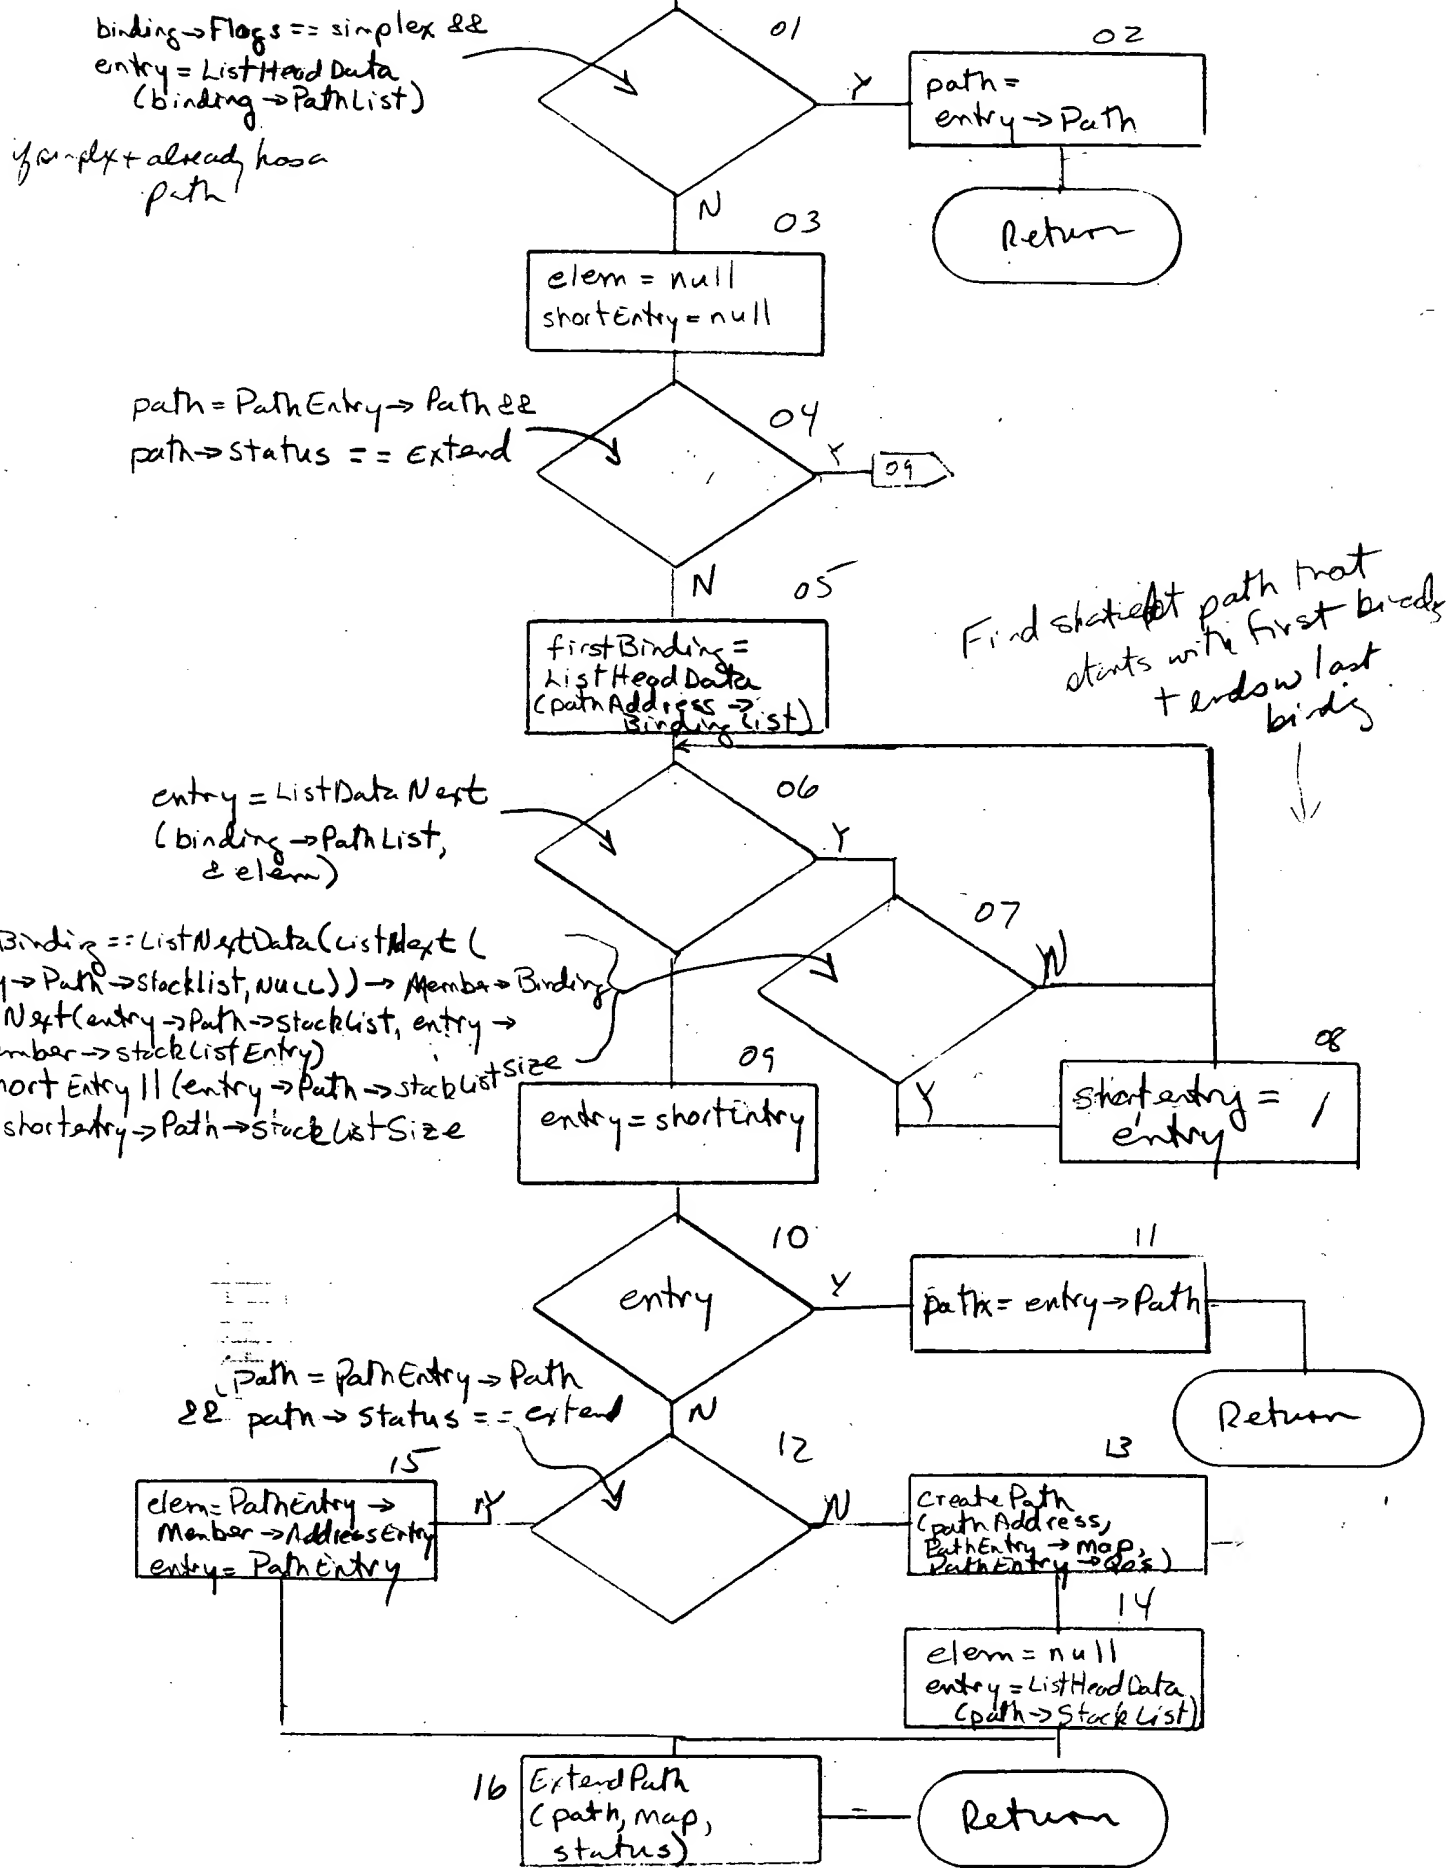 binding→Flags == simplex &&
entry = ListHeadData
(binding→PathList)
if simplex + already has a
path
01
Y
N
02
path =
entry→Path
Return
03
elem = null
shortEntry = null
path = PathEntry→Path &&
path→Status == Extend
04
Y
09
N
05
firstBinding =
ListHeadData
(pathAddress→
BindingList)
Find shortest path that
starts with first binding
+ ends w last
binding
entry = ListDataNext
(binding→PathList,
& elem)
06
Y
07
N
Y
Binding == ListNextData(ListNext(
y→Path→stacklist, NULL))→Member→Binding
Next(entry→Path→stackList, entry→
mber→stackListEntry)
hort Entry || (entry→Path→stackListSize
shortentry→Path→StackListSize
08
shortentry =
entry
09
entry = shortEntry
10
entry
Y
N
11
path = entry→Path
Return
path = pathEntry→Path
&& path→status == extend
12
Y
N
13
createPath
(pathAddress,
PathEntry→map,
PathEntry→Qos)
14
elem = null
entry = ListHeadData
(path→StackList)
15
elem = PathEntry→
Member→AddressEntry
entry = PathEntry
16
ExtendPath
(path, map,
status)
Return